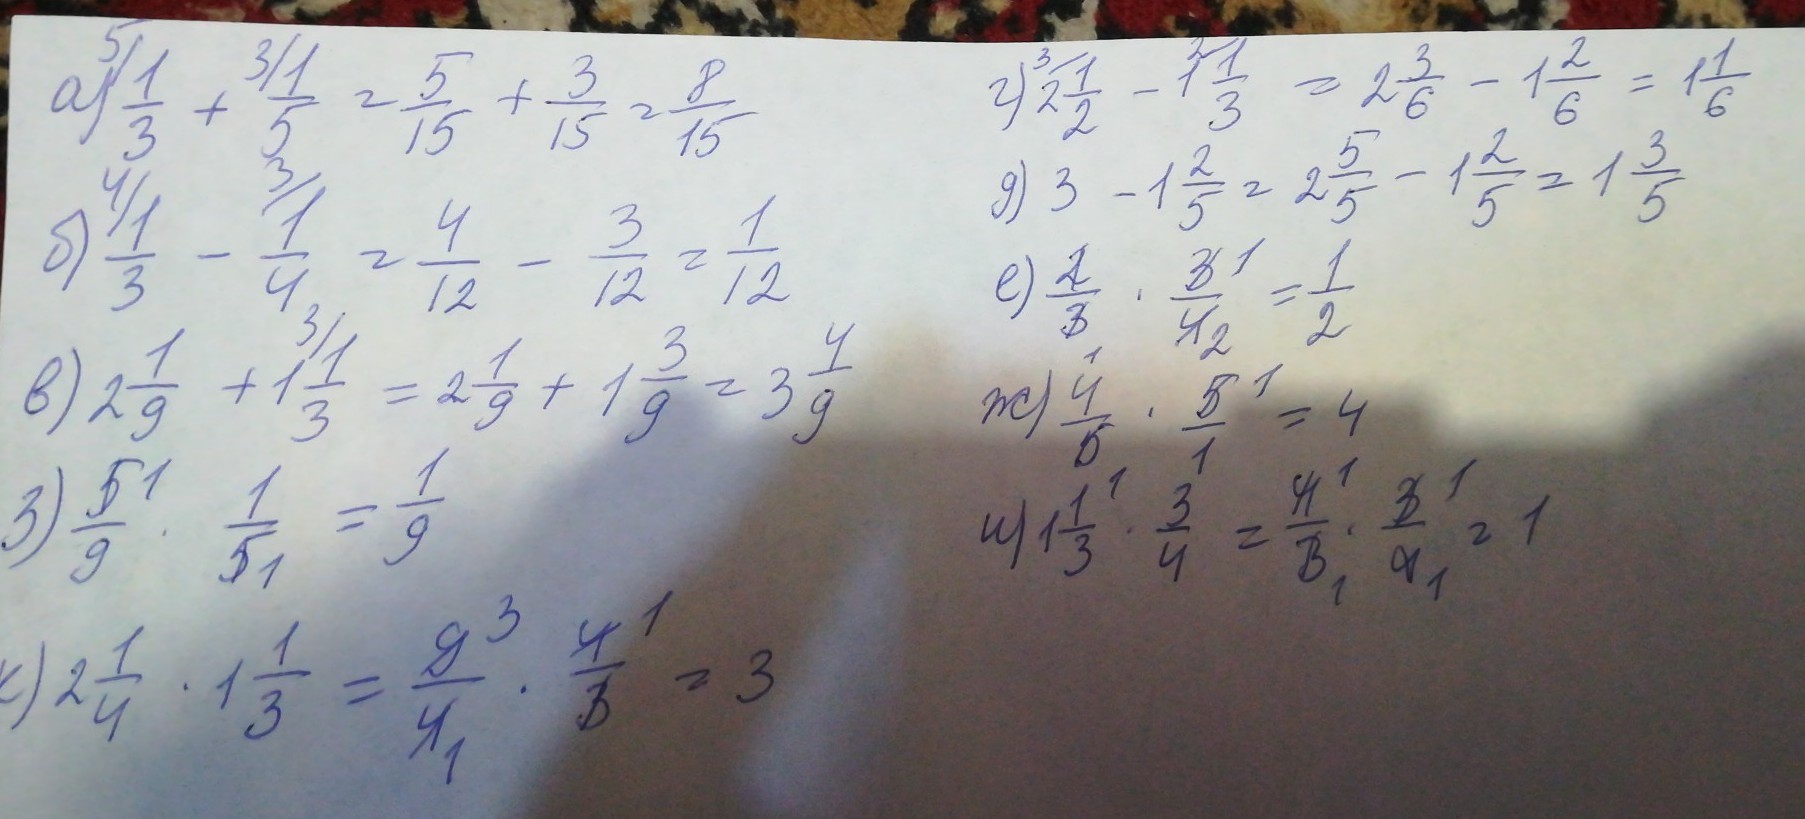 а) 5/ 1/3 + 3/ 1/5 = 5/15 + 3/15 = 8/15
б) 4/ 1/3 - 3/ 1/4 = 4/12 - 3/12 = 1/12
в) 2 1/9 + 1 3/ 1/3 = 2 1/9 + 1 3/9 = 3 4/9
з) 5 1/9 · 1/5 1 = 1/9
к) 2 1/4 · 1 1/3 = 9 3/4 1 · 4 1/3 = 3
г) 3/ 2 1/2 - 2/ 1 1/3 = 2 3/6 - 1 2/6 = 1 1/6
д) 3 - 1 2/5 = 2 5/5 - 1 2/5 = 1 3/5
е) 2/3 1 · 3 1/4 2 = 1/2
ж) 4/5 · 5 1/1 = 4
и) 1 1/3 1 · 3/4 = 4 1/3 1 · 3 1/4 1 = 1